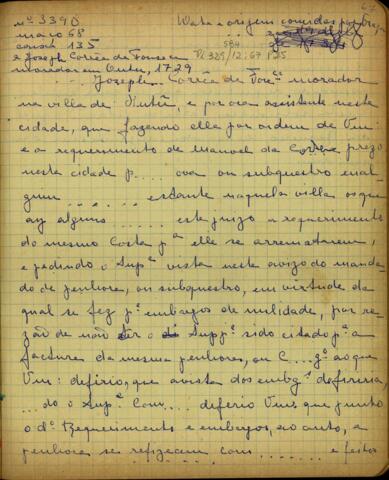 67
Nº 3390
maço 68
caixa 135
Joseph Corrêa da Fonseca
morador em Outer, 1729
584
12:67
Joseph Corrêa de Fonc.ª morador
na villa de Sintra, e por ora assistente neste
cidade, que fazendo elle por ordem de Vm
e a requerimento de Manoel da prezo
neste cidade p.... ou subquestro em al-
gum ...... estante naquela villa os que
ay alguns ..... este juizo a requerimento
do mesmo Costa p.ª elle se arrematarem,
e pedindo o Sup.ª vista neste avizo do manda
do de penhores, ou subquestro, em virtude da
qual se fez p.ª embargos de nulidade, por re-
zão de não ter o Sup.ª sido citado p.ª a
factura da mesma penhores, ou C...g.º ao que
Vm: deferio, que a vista dos embg.ª defirira
...do o Sup.ª Com.... deferio Vm, que junto
o d.º Requerimento e embargos, ao auto, a
penhora se refizeram com ....... e feitos